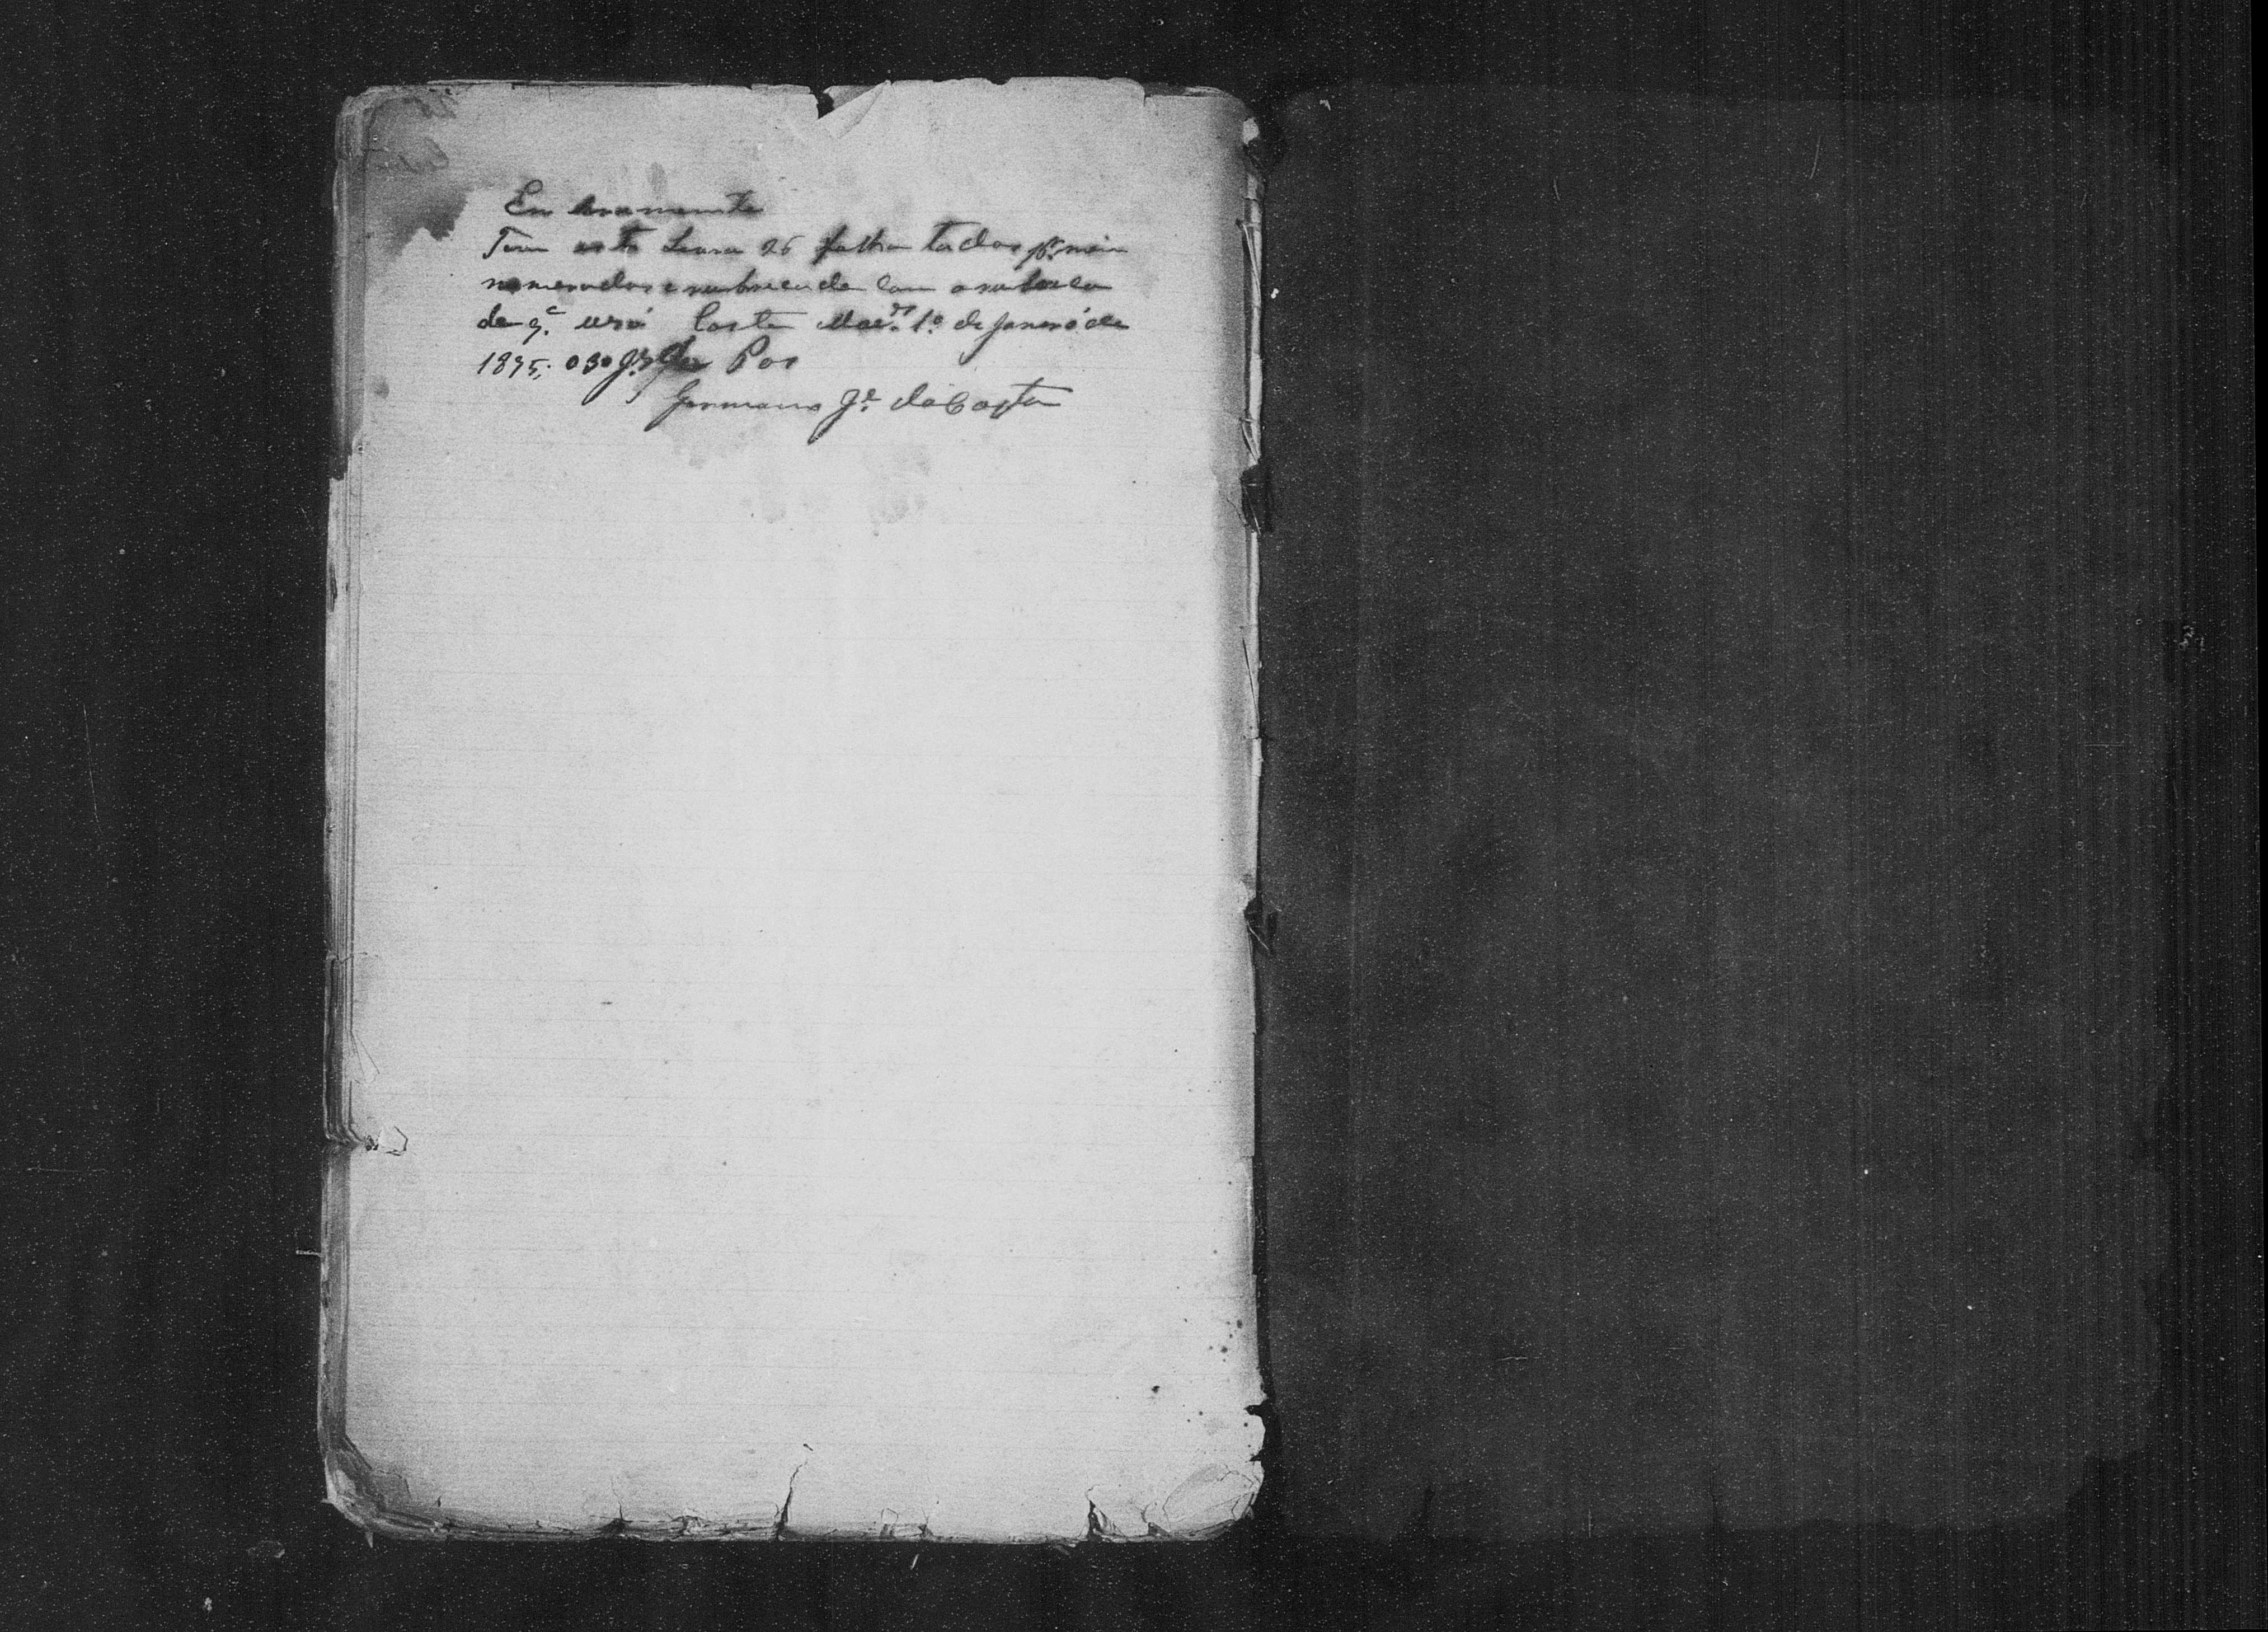 En seramento
Tem este Livro 26 folha todas pr. mim
nomeradas e rubricada com a rubrica
de q.e uso Costa 1.º de Janero de
1895. O 3º J.z Paz
Germano J.e da Costa